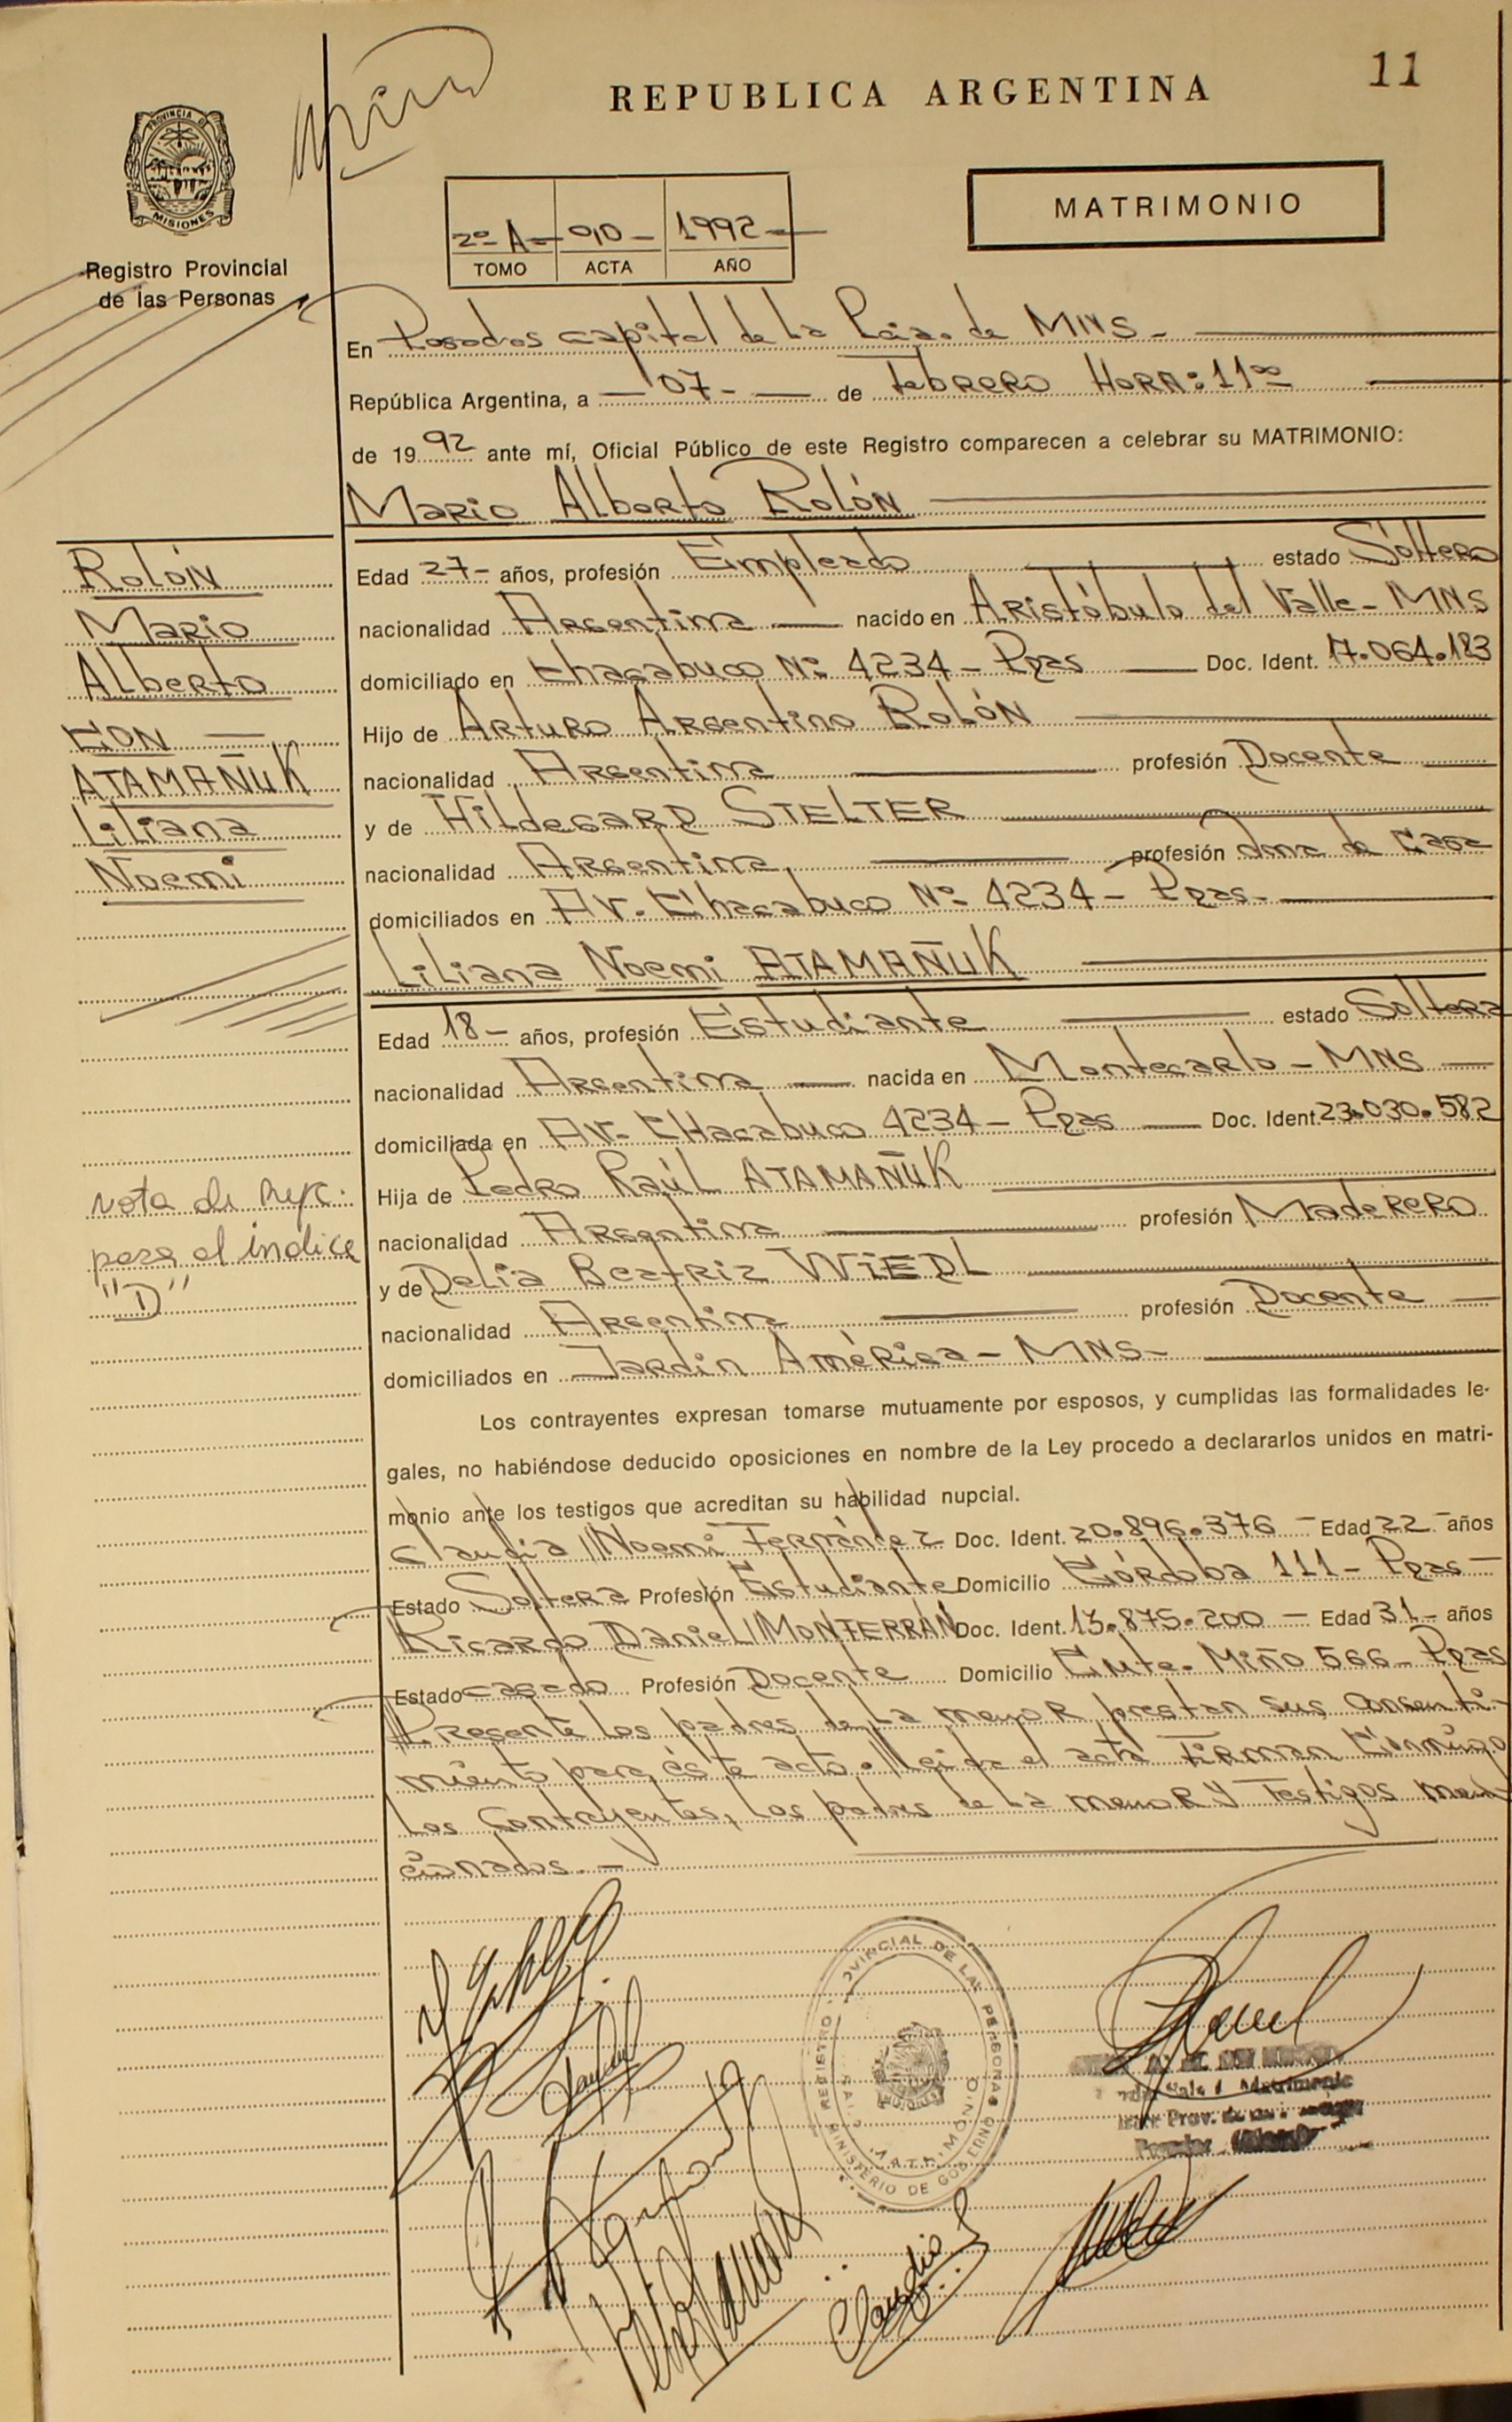 11
REPUBLICA ARGENTINA
PROVINCIA DE
MISIONES
MATRIMONIO
2º A- 010- 1992-
TOMO ACTA AÑO
Registro Provincial
de las Personas
En Posadas capital de la Pcia. de MNS-
República Argentina, a -07- de Febrero HORA: 11ºº
de 1992 ante mí, Oficial Público de este Registro comparecen a celebrar su MATRIMONIO:
Mario Alberto Rolón
Rolón
Mario
Alberto
CON -
ATAMAÑUK
Liliana
Noemi
Edad 27- años, profesión Empleado estado Soltero
nacionalidad Argentina nacido en Aristóbulo del Valle- MNS
domiciliado en Chacabuco Nº 4234- Pdas Doc. Ident. 17.064.183
Hijo de Arturo Argentino Rolón
nacionalidad Argentina profesión Docente
y de Hildegard STELTER
nacionalidad Argentina profesión Ama de Casa
domiciliados en Av. Chacabuco Nº 4234- Pdas.
Liliana Noemi ATAMAÑUK
Edad 18- años, profesión Estudiante estado Soltera
nacionalidad Argentina nacida en Montecarlo- MNS
domiciliada en Av. CHacabuco 4234- Pdas Doc. Ident. 23.030.582
Hija de Pedro Raúl ATAMAÑUK
nacionalidad Argentina profesión Maderero
y de Delia Beatriz WIEDL
nacionalidad Argentina profesión Docente
domiciliados en Jardín América- MNS-
nota de
para el indice
"D"
Los contrayentes expresan tomarse mutuamente por esposos, y cumplidas las formalidades le-
gales, no habiéndose deducido oposiciones en nombre de la Ley procedo a declararlos unidos en matri-
monio ante los testigos que acreditan su habilidad nupcial.
Claudia Noemi Fernández Doc. Ident. 20.896.376 - Edad 22 años
Estado Soltera Profesión Estudiante Domicilio Córdoba 111- Pdas-
Ricardo Daniel MONTERRAN Doc. Ident. 13.875.200 - Edad 31- años
Estado casado Profesión Docente Domicilio Cnte. Miño 566- Pdas
Presente los padres de la menor prestan sus consenti-
miento para éste acto. Leída el acta Firman Conmigo
los Contrayentes, los padres de la menor y Testigos men
cionados.-
REGISTRO PROVINCIAL DE LAS PERSONAS
MINISTERIO DE GOBIERNO